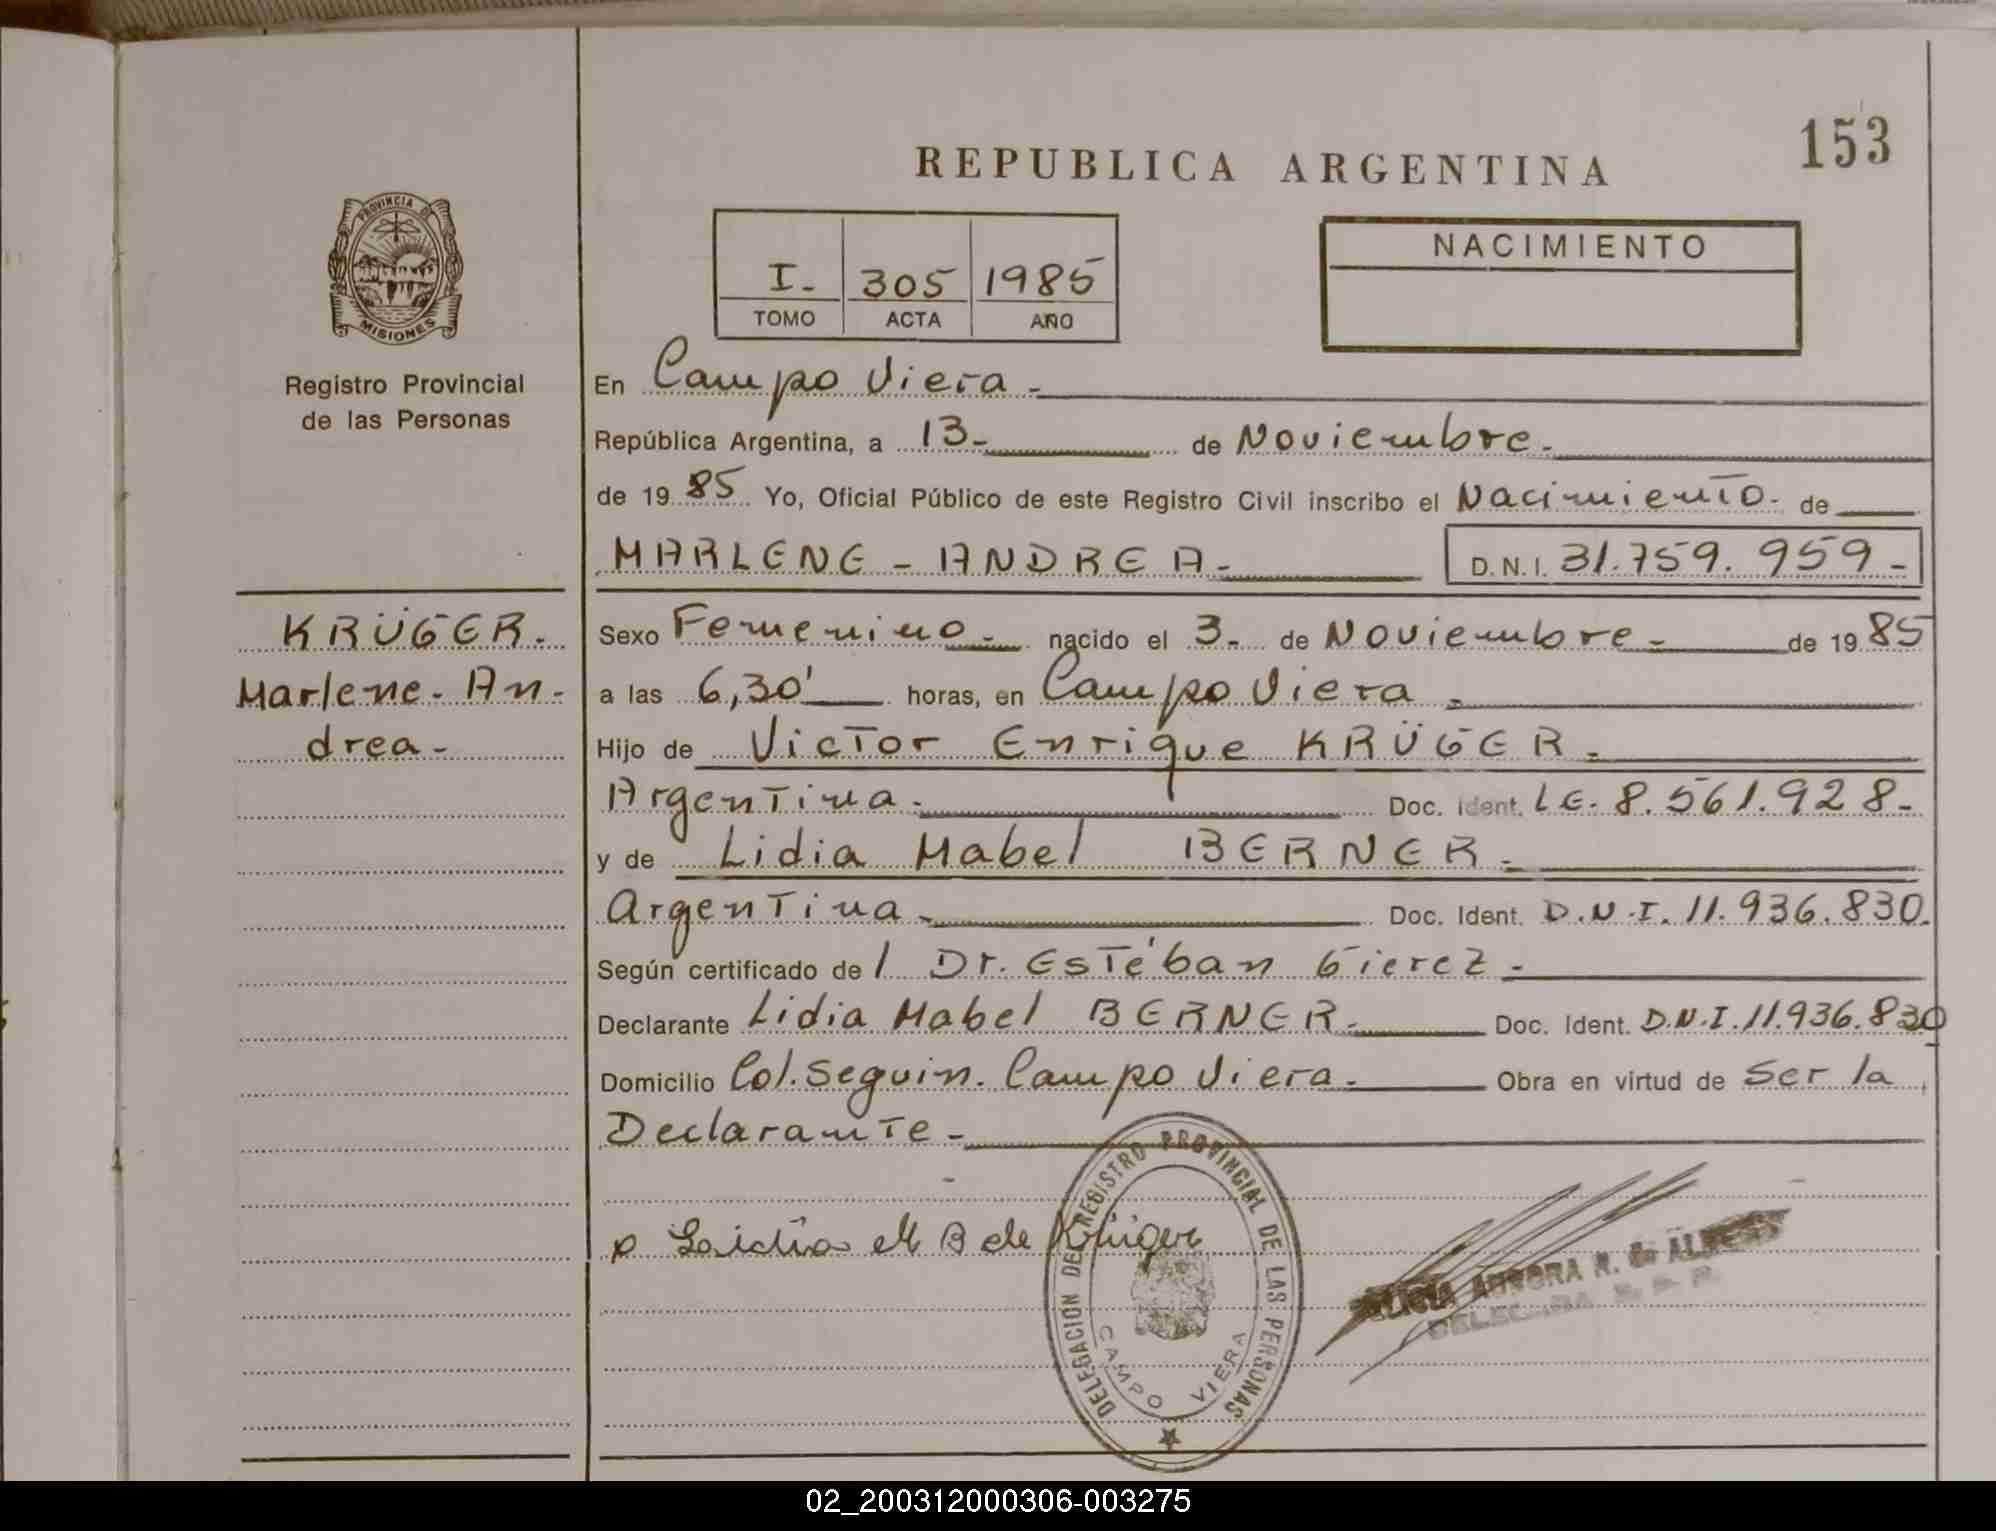 153
REPUBLICA ARGENTINA
PROVINCIA DE
MISIONES
Registro Provincial
de las Personas
I- 305 1985
TOMO ACTA AÑO
NACIMIENTO
En Campo Viera-
República Argentina, a 13- de Noviembre-
de 19 85 Yo, Oficial Público de este Registro Civil inscribo el Nacimiento- de
MARLENE - ANDREA- D.N.I. 31.759.959-
KRÜGER-
Marlene- An-
drea-
Sexo Femenino- nacido el 3- de Noviembre- de 19 85
a las 6,30' horas, en Campo Viera-
Hijo de Victor Enrique KRÜGER-
Argentina- Doc. Ident. LE. 8.561.928-
y de Lidia Mabel BERNER-
Argentina- Doc. Ident. D.N.I. 11.936.830.
Según certificado de l Dr. Estéban Gierez-
Declarante Lidia Mabel BERNER- Doc. Ident. D.N.I. 11.936.830
Domicilio Col. Seguin. Campo Viera- Obra en virtud de Ser la
Declarante-
M B de Krüger
DELEGACIÓN DE REGISTRO PROVINCIAL DE LAS PERSONAS
CAMPO VIERA
AURORA R. de
02_200312000306-003275